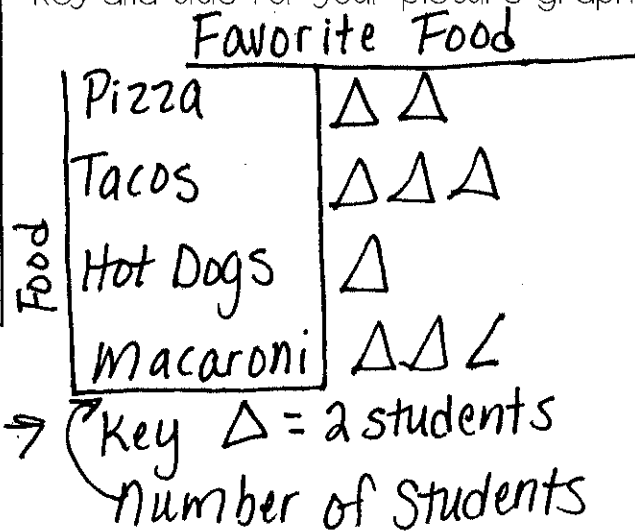 Key and title for your picture graph
Favorite Food
Pizza
Tacos
Hot Dogs
Macaroni
Food
Key Δ = 2 students
Number of Students